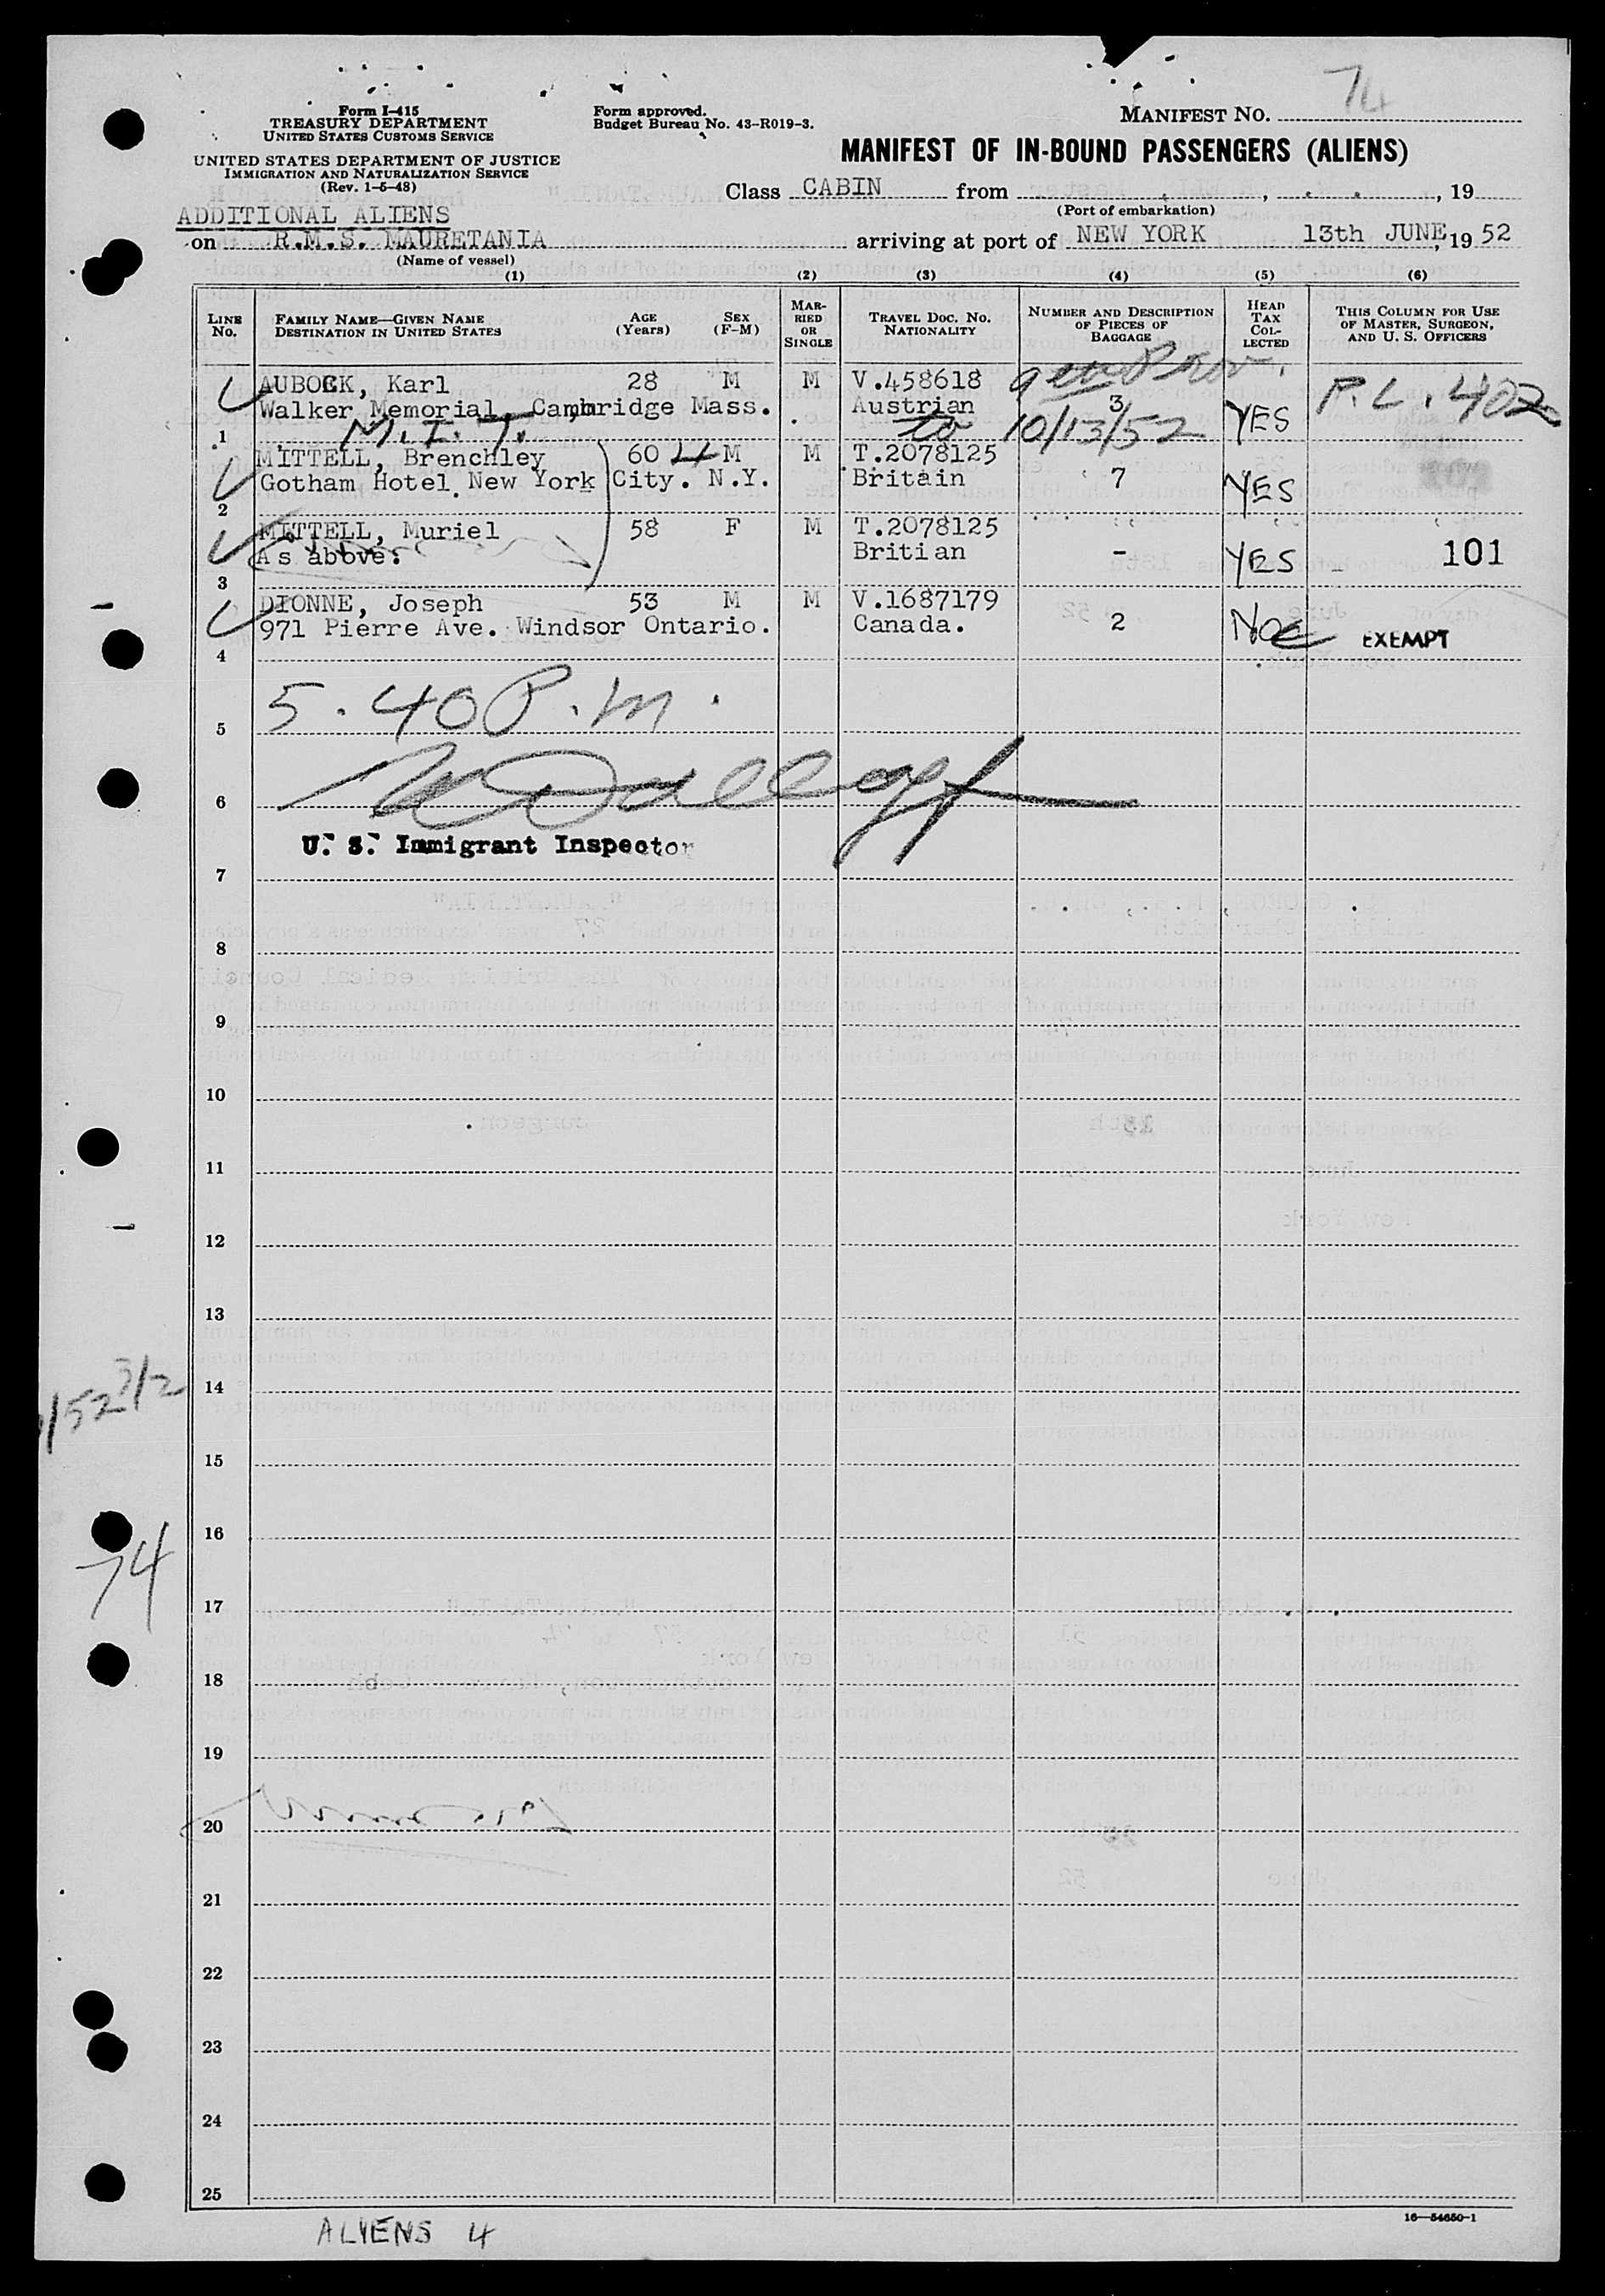 74
Form I-415
TREASURY DEPARTMENT
UNITED STATES CUSTOMS SERVICE
UNITED STATES DEPARTMENT OF JUSTICE
IMMIGRATION AND NATURALIZATION SERVICE
(Rev. 1-5-48)
Form approved.
Budget Bureau No. 43-R019-3.
MANIFEST NO.
MANIFEST OF IN-BOUND PASSENGERS (ALIENS)
Class CABIN from , , 19
(Port of embarkation)
ADDITIONAL ALIENS
on R.M.S. MAURETANIA arriving at port of NEW YORK 13th JUNE, 19 52
(Name of vessel)
(1) (2) (3) (4) (5) (6)
LINE No. FAMILY NAME—GIVEN NAME DESTINATION IN UNITED STATES AGE (Years) SEX (F-M) MARRIED OR SINGLE TRAVEL DOC. NO. NATIONALITY NUMBER AND DESCRIPTION OF PIECES OF BAGGAGE HEAD TAX COLLECTED THIS COLUMN FOR USE OF MASTER, SURGEON, AND U. S. OFFICERS
AUBOCK, Karl 28 M M V.458618 P.L. 402
Walker Memorial, Cambridge Mass. Austrian 3 YES
1 M.I.T. to 10/13/52
MITTELL, Brenchley 60 4 M M T.2078125
Gotham Hotel New York City. N.Y. Britain 7 YES
2
MITTELL, Muriel 58 F M T.2078125
As above. Britian - YES - 101
3
DIONNE, Joseph 53 M M V.1687179
971 Pierre Ave. Windsor Ontario. Canada. 2 No EXEMPT
4
5.40 P.m.
5
6
U. S. Immigrant Inspector
7
8
9
10
11
12
13
14
/52 3/2
15
16
74
17
18
19
20
21
22
23
24
25
16—54650-1
ALIENS 4